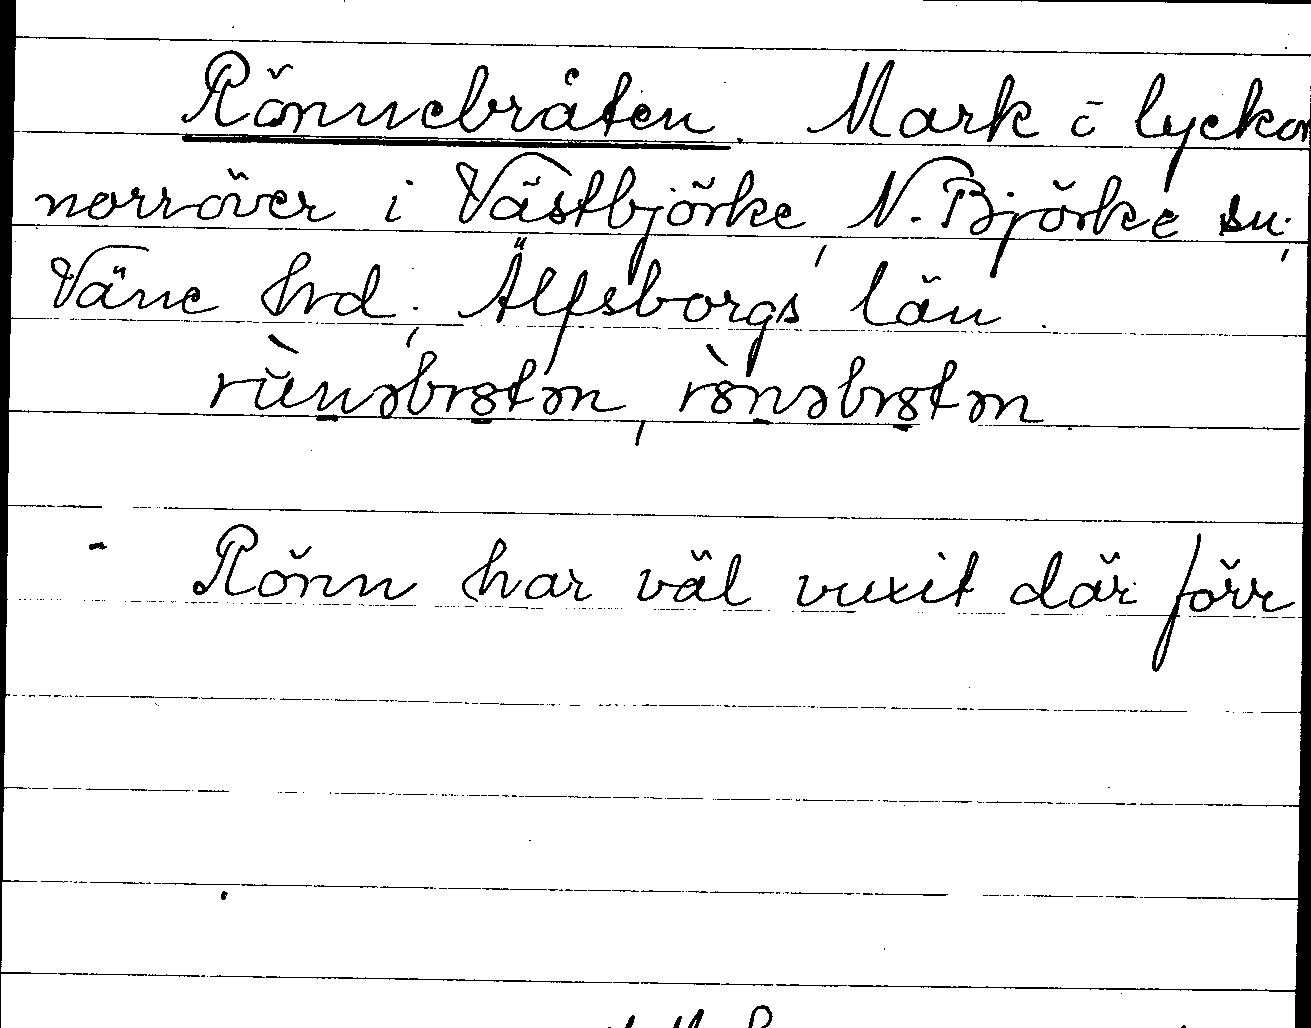 Rönnebråten. Mark i lyckor
norröver i Västbjörke, N. Björke sn;
Väne hrd; Älfsborgs län.
rùnəbrɔtən, rònəbrɔtən.
- Rönn har väl vuxit där förr